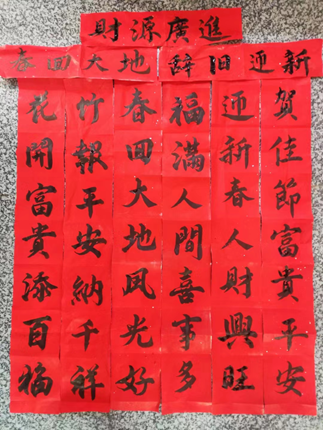 財源廣進
春回大地
辞旧迎新
賀佳節富貴平安
迎新春人財興旺
福滿人間喜事多
春回大地风光好
竹報平安納千祥
花開富貴添百福